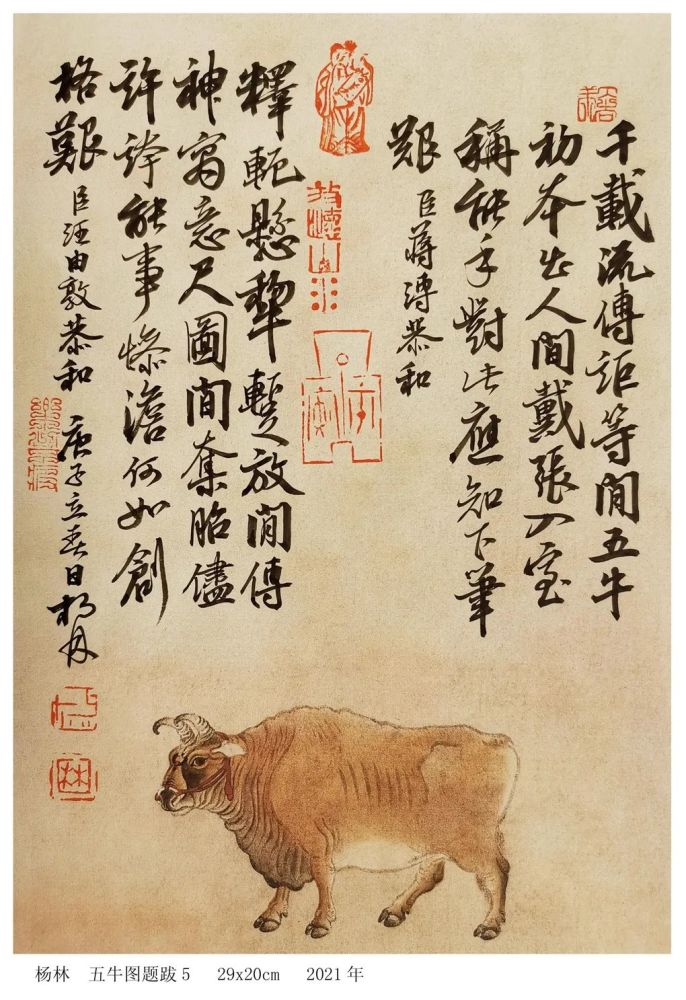 千載流傳詎等閒五牛
初本出人間戴張入室
稱能手對此應知下筆
艱 臣蔣溥恭和
釋軛懸犂暫放閒傳
神寓意尺圖間奪胎儘
許誇能事慘澹何如創
格艱 臣汪由敦恭和 庚子立春日杨林
杨林 五牛图题跋5 29x20cm 2021年